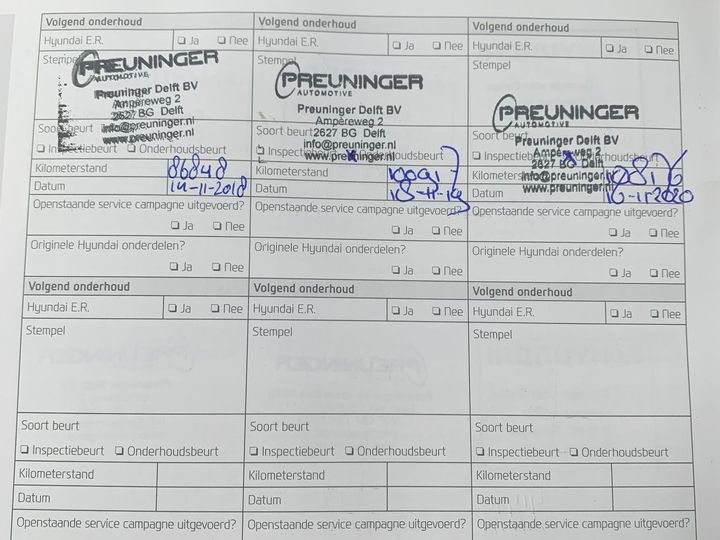 Volgend onderhoud
Hyundai E.R. Ja Nee
Stempel
PREUNINGER
AUTOMOTIVE
Preuninger Delft BV
Ampereweg 2
2627 BG Delft
info@preuninger.nl
www.preuninger.nl
Soort beurt
Inspectiebeurt Onderhoudsbeurt
Kilometerstand 86848
Datum 14-11-2018
Openstaande service campagne uitgevoerd?
Ja Nee
Originele Hyundai onderdelen?
Ja Nee
Volgend onderhoud
Hyundai E.R. Ja Nee
Stempel
PREUNINGER
AUTOMOTIVE
Preuninger Delft BV
Ampereweg 2
Soort beurt 2627 BG Delft
info@preuninger.nl
Inspectiebeurt Onderhoudsbeurt
www.preuninger.nl
Kilometerstand
Datum 18-11-19
Openstaande service campagne uitgevoerd?
Ja Nee
Originele Hyundai onderdelen?
Ja Nee
Volgend onderhoud
Hyundai E.R. Ja Nee
Stempel
PREUNINGER
AUTOMOTIVE
Soort beurt
Preuninger Delft BV
Ampereweg 2
Inspectiebeurt Onderhoudsbeurt
2627 BG Delft
Kilometerstand
info@preuninger.nl
Datum 16-11-2020
www.preuninger.nl
Openstaande service campagne uitgevoerd?
Ja Nee
Originele Hyundai onderdelen?
Ja Nee
Volgend onderhoud
Hyundai E.R. Ja Nee
Stempel
Soort beurt
Inspectiebeurt Onderhoudsbeurt
Kilometerstand
Datum
Openstaande service campagne uitgevoerd?
Volgend onderhoud
Hyundai E.R. Ja Nee
Stempel
Soort beurt
Inspectiebeurt Onderhoudsbeurt
Kilometerstand
Datum
Openstaande service campagne uitgevoerd?
Volgend onderhoud
Hyundai E.R. Ja Nee
Stempel
Soort beurt
Inspectiebeurt Onderhoudsbeurt
Kilometerstand
Datum
Openstaande service campagne uitgevoerd?